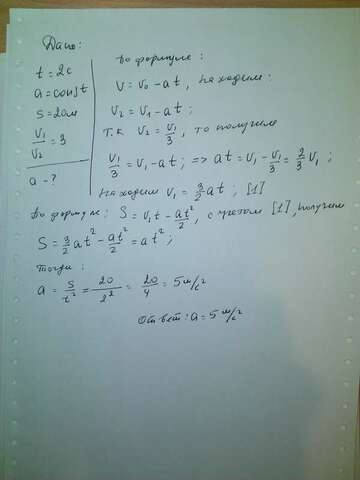 Дано:
t = 2с
a = const
S = 20м
V₁/V₂ = 3
a - ?
По формуле:
V = V₀ - at, находим:
V₂ = V₁ - at;
т.к V₂ = V₁/3, то получим
V₁/3 = V₁ - at; => at = V₁ - V₁/3 = 2/3 V₁;
Находим V₁ = 3/2 at; [1]
По формуле: S = V₁t - at²/2, с учетом [1], получим
S = 3/2 at² - at²/2 = at²;
Тогда:
a = S/t² = 20/2² = 20/4 = 5 м/с²
Ответ: a = 5 м/с²